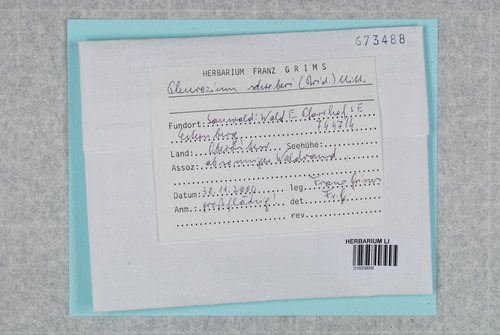 673488
HERBARIUM FRANZ GRIMS
Pleurozium schreberi (Brid.) Mitt.
Fundort: Sauwald: Wald E Pfarrhof SE
7447/4
Land: Oberösterr. Seehöhe:
Assoz: Waldrand
Datum: 30.11.2000 leg. Franz Grims
Anm.: großflächig! det
rev.
HERBARIUM LI